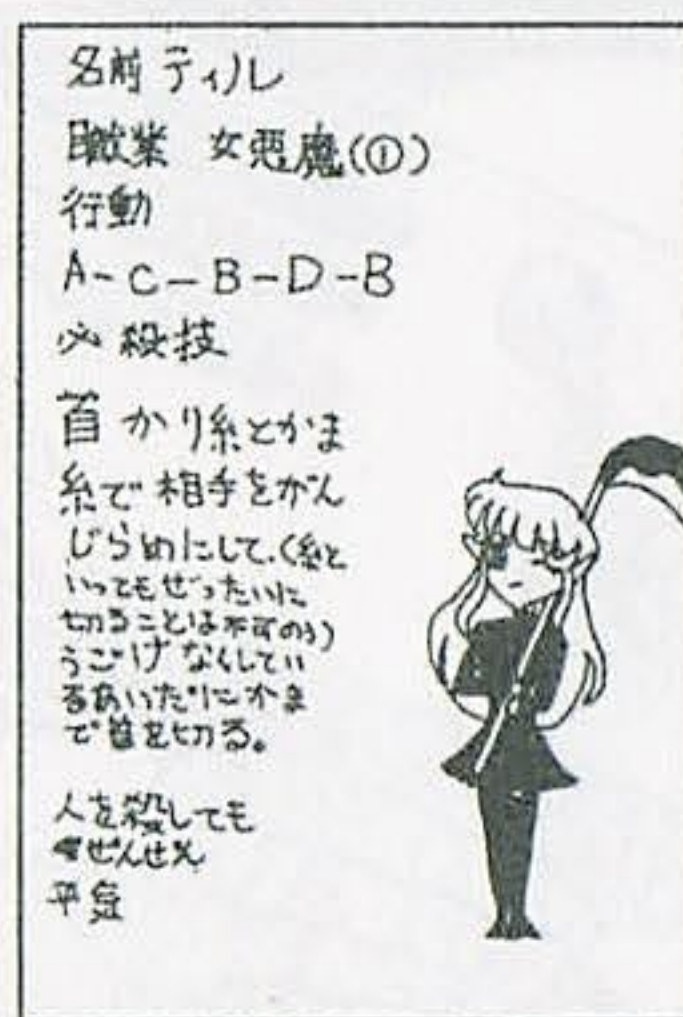 名前 ティルレ
職業 女悪魔(①)
行動
A-C-B-D-B
必殺技
首かり糸とかま
糸で相手をがん
じらめにして、(糸と
いってもぜったいに
切ることは不可のう)
うごけなくしてい
るあいだにかま
で首を切る。
人を殺しても
ぜんぜん
平気